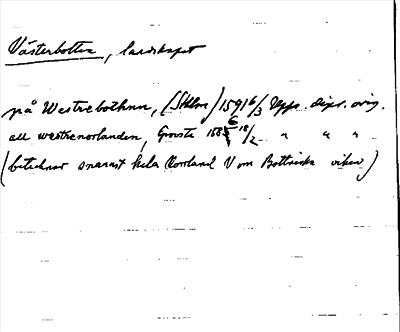 Västerbotten, landskapet
på Westrebothnn, (Sthlm) 1591 6/3 Upps. dipr. orig.
all westrenorlanden, Gronste 1585 6 18/2 " " "
(betecknar snarast hela Norrland V om Bottniska viken)